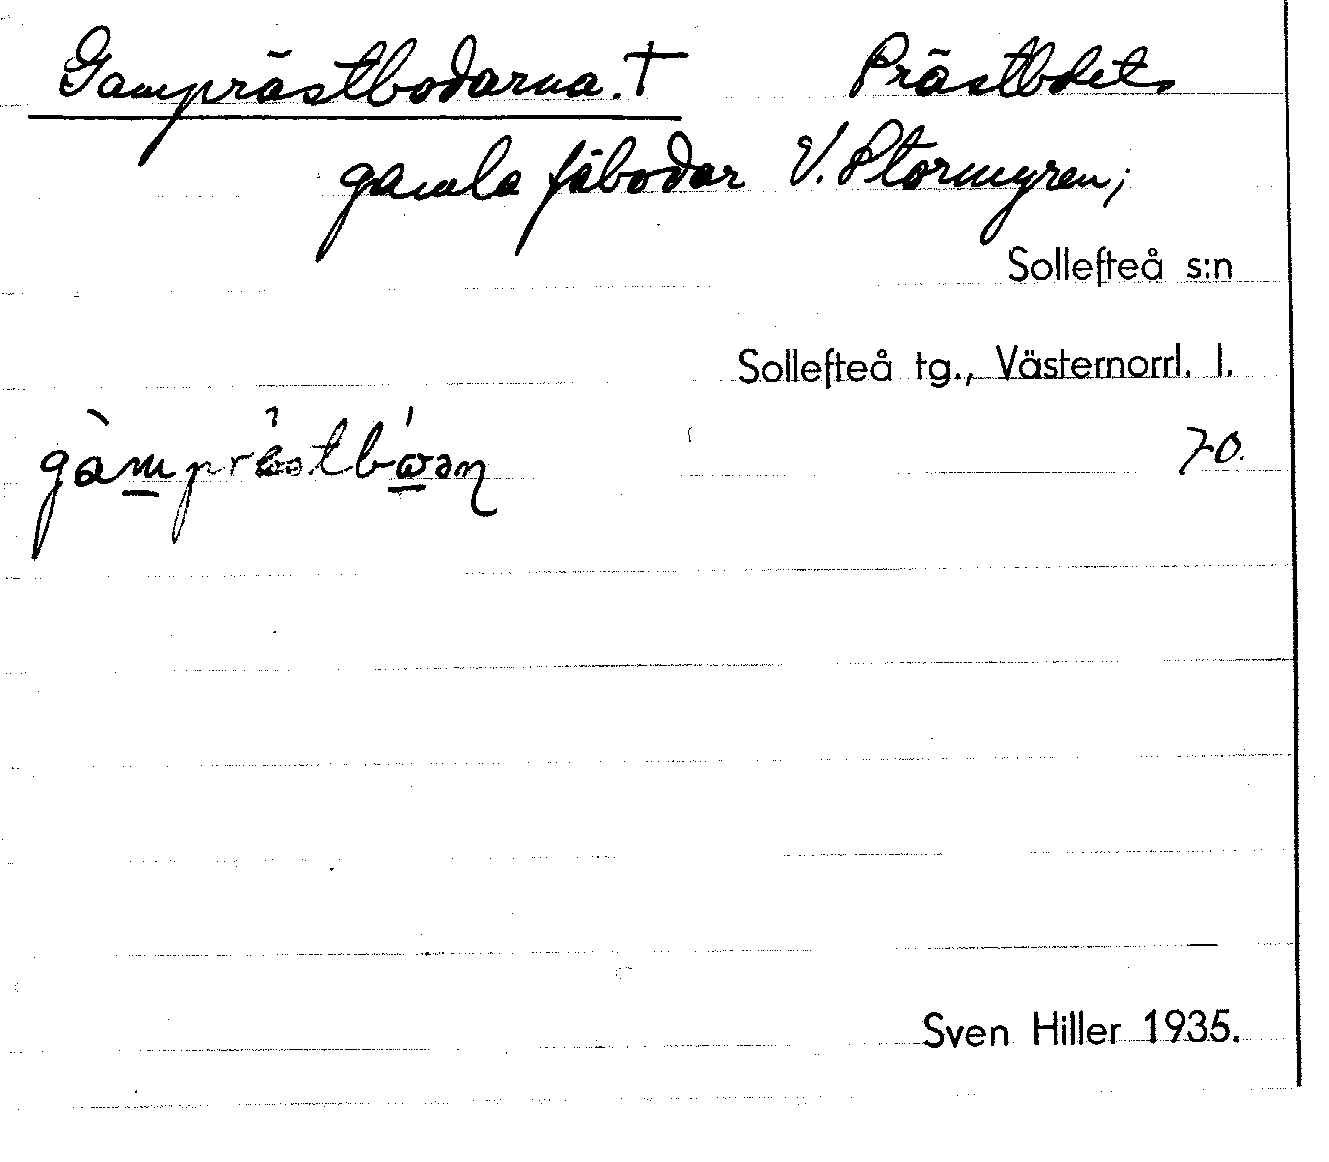 Gamprästbodarna. † Prästbolet.
gamla fäbodar V. Stormyren;
Sollefteå s:n
Sollefteå tg., Västernorrl. l.
70.
Sven Hiller 1935.